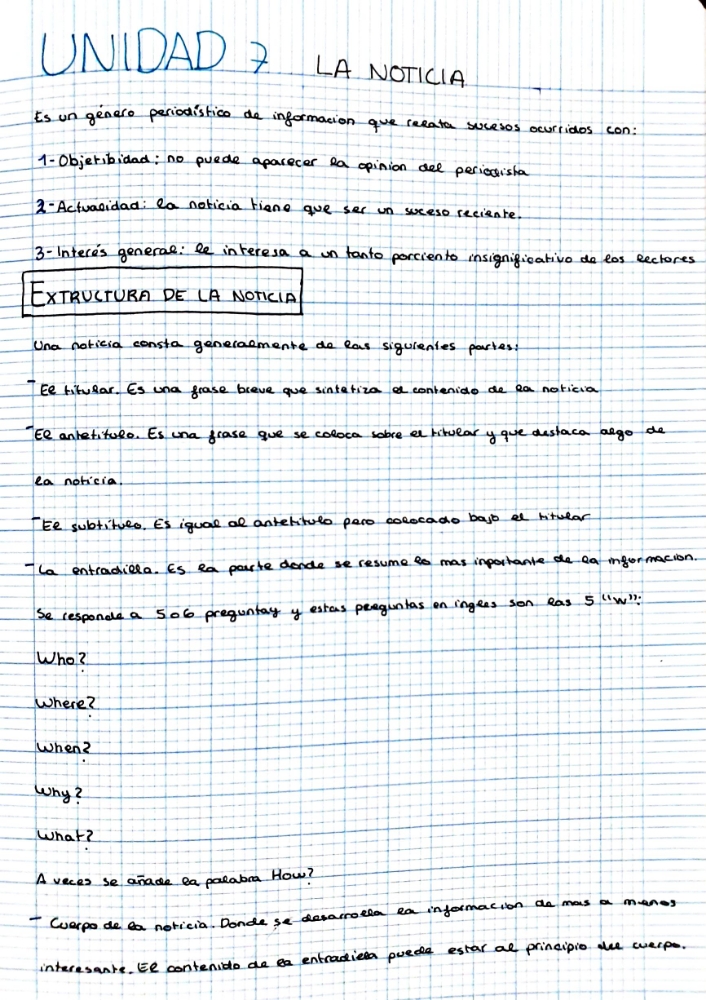 UNIDAD 7 LA NOTICIA
Es un género periodístico de informacion que relata sucesos ocurridos con:
1-Objetibidad: no puede aparecer la opinion del periodista
2-Actualidad: la noticia tiene que ser un suceso reciente.
3-Interés general: le interesa a un tanto porciento insignificativo de los lectores
EXTRUCTURA DE LA NOTICIA
Una noticia consta generalmente de las siguientes partes:
- El titular. Es una frase breve que sintetiza el contenido de la noticia
- El antetitulo. Es una frase que se coloca sobre el titular y que destaca algo de
la noticia.
- El subtitulo. Es igual al antetitulo pero colocado bajo el titular
- La entradilla. Es la parte donde se resume lo mas inportante de la informacion.
Se responde a 5 o 6 preguntas y estas preguntas en ingles son las 5 "W":
Who?
Where?
When?
Why?
What?
A veces se añade la palabra How?
- Cuerpo de la noticia. Donde se desarrolla la informacion de mas a menos
interesante. El contenido de la entradilla puede estar al principio del cuerpo.